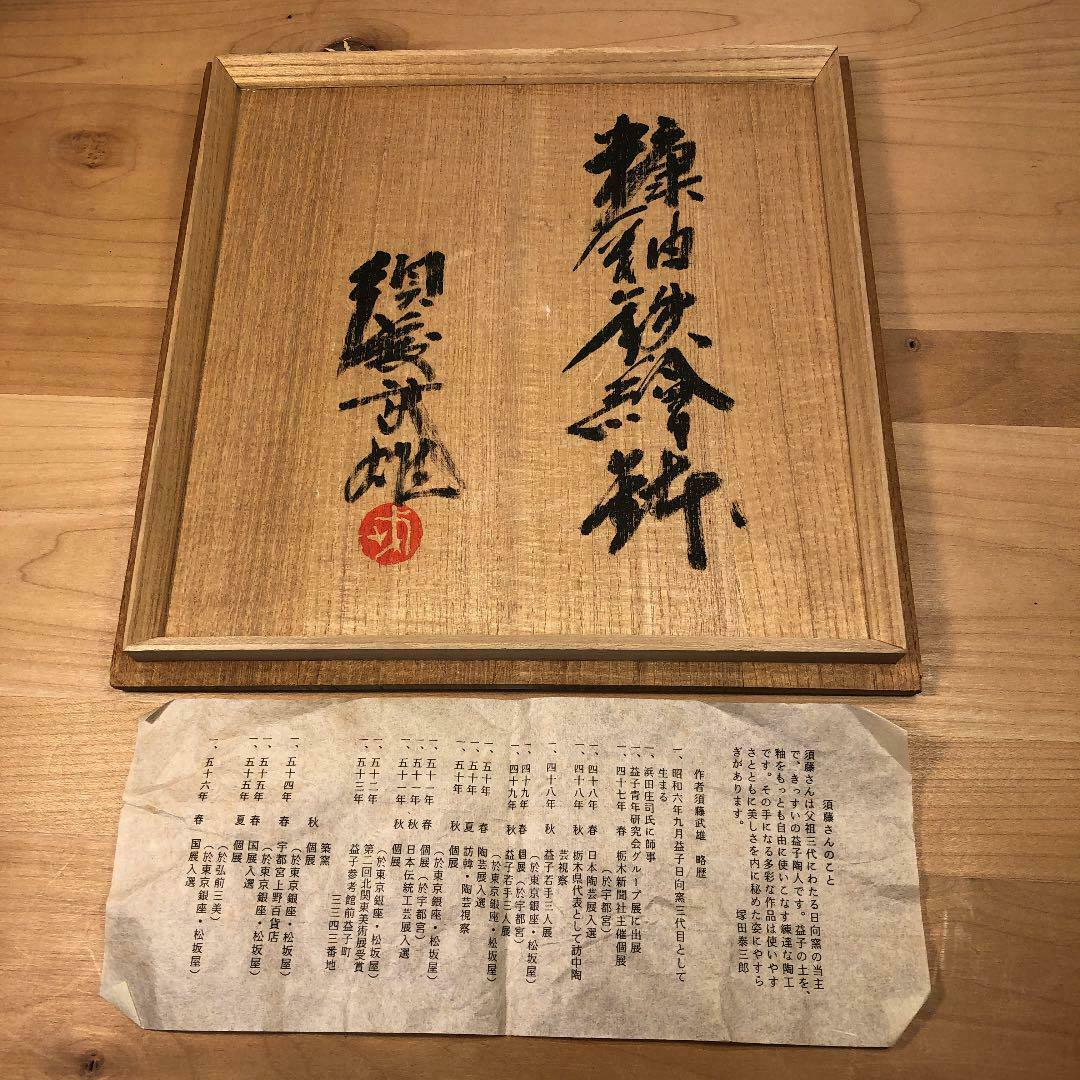 糠釉鉄繪鉢
須藤武雄
須藤さんのこと
須藤さんは父祖三代にわたる日向窯の当主
で。きっすいの益子陶人です。益子の土を、
釉をもっとも自由に使いこなす練達な陶工
です。その手になる多彩な作品は使いやす
さとともに美しさを内に秘めた姿にやすら
ぎがあります。
塚田泰三郎
作者須藤武雄 略歴
一、昭和六年九月益子日向窯三代目として
生まる
一、浜田庄司氏に師事
一、益子青年研究会グループ展に出展
一、四十七年 春 栃木新聞社主催個展
（於宇都宮）
一、四十八年 春 日本陶芸展入選
一、四十八年 秋 栃木県代表として訪中陶
芸視察
一、四十八年 秋 益子若手三人展
（於東京銀座・松坂屋）
一、四十九年 春 個展（於宇都宮）
一、四十九年 秋 益子若手三人展
（於東京銀座・松坂屋）
一、五十年 春 陶芸展入選
一、五十年 夏 訪韓・陶芸視察
一、五十年 秋 個展
（於東京銀座・松坂屋）
一、五十一年 春 個展（於宇都宮）
一、五十一年 秋 日本伝統工芸展入選
一、五十一年 秋 個展
（於東京銀座・松坂屋）
一、五十二年 第二回北関東美術展受賞
一、五十三年 益子参考館前益子町
三三四三番地
築窯
秋 個展
（於東京銀座・松坂屋）
一、五十四年 春 宇都宮上野百貨店
（於東京銀座・松坂屋）
一、五十五年 春 国展入選
一、五十五年 夏 個展
（於弘前三美）
（於東京銀座・松坂屋）
一、五十六年 春 国展入選